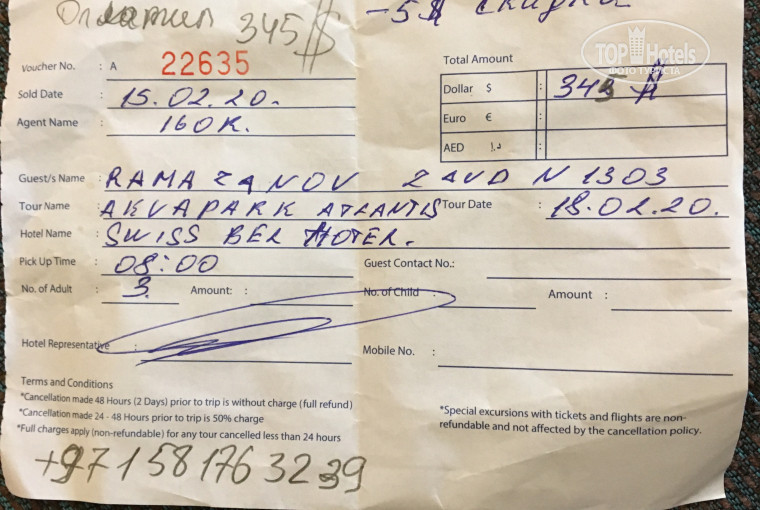 Оплатил 345 $
-5 $ скидка
TOP Hotels
ФОТО ТУРИСТА
Voucher No. : A 22635
Sold Date : 15.02.20.
Agent Name : 160К.
Total Amount
Dollar $ : 343 $
Euro € :
AED د.إ :
Guest/s Name : RAMAZANOV ZAVD N 1303
Tour Name : AKVAPARK ATLANTIS Tour Date : 18.02.20.
Hotel Name : SWISS BEL HOTEL.
Pick Up Time : 08:00 Guest Contact No.:
No. of Adult : 3 Amount: : No. of Child : Amount :
Hotel Representative :
Mobile No. :
Terms and Conditions
*Cancellation made 48 Hours (2 Days) prior to trip is without charge (full refund)
*Cancellation made 24 - 48 Hours prior to trip is 50% charge
*Full charges apply (non-refundable) for any tour cancelled less than 24 hours
*Special excursions with tickets and flights are non-
refundable and not affected by the cancellation policy.
+971 58 176 3239